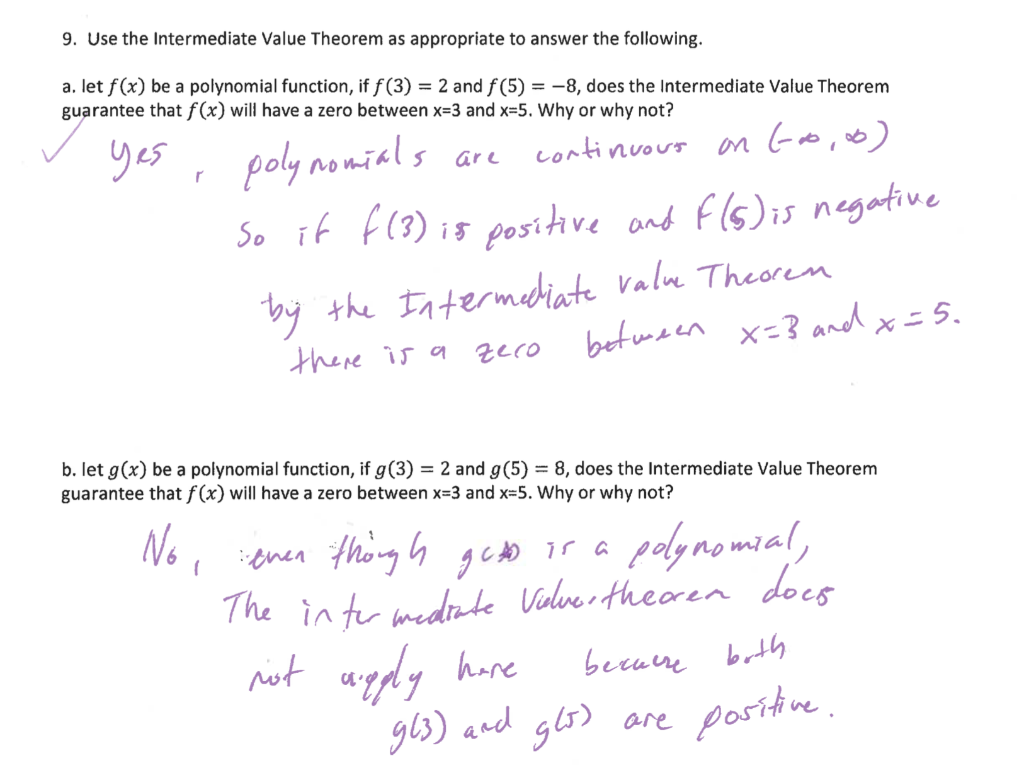 9. Use the Intermediate Value Theorem as appropriate to answer the following.
a. let f(x) be a polynomial function, if f(3) = 2 and f(5) = −8, does the Intermediate Value Theorem
guarantee that f(x) will have a zero between x=3 and x=5. Why or why not?
✓ yes, polynomials are continuous on (-∞, ∞)
So if f(3) is positive and f(5) is negative
by the Intermediate value Theorem
there is a zero between x=3 and x=5.
b. let g(x) be a polynomial function, if g(3) = 2 and g(5) = 8, does the Intermediate Value Theorem
guarantee that f(x) will have a zero between x=3 and x=5. Why or why not?
No, even though g(x) is a polynomial,
The intermediate Value theorem does
not apply here because both
g(3) and g(5) are positive.